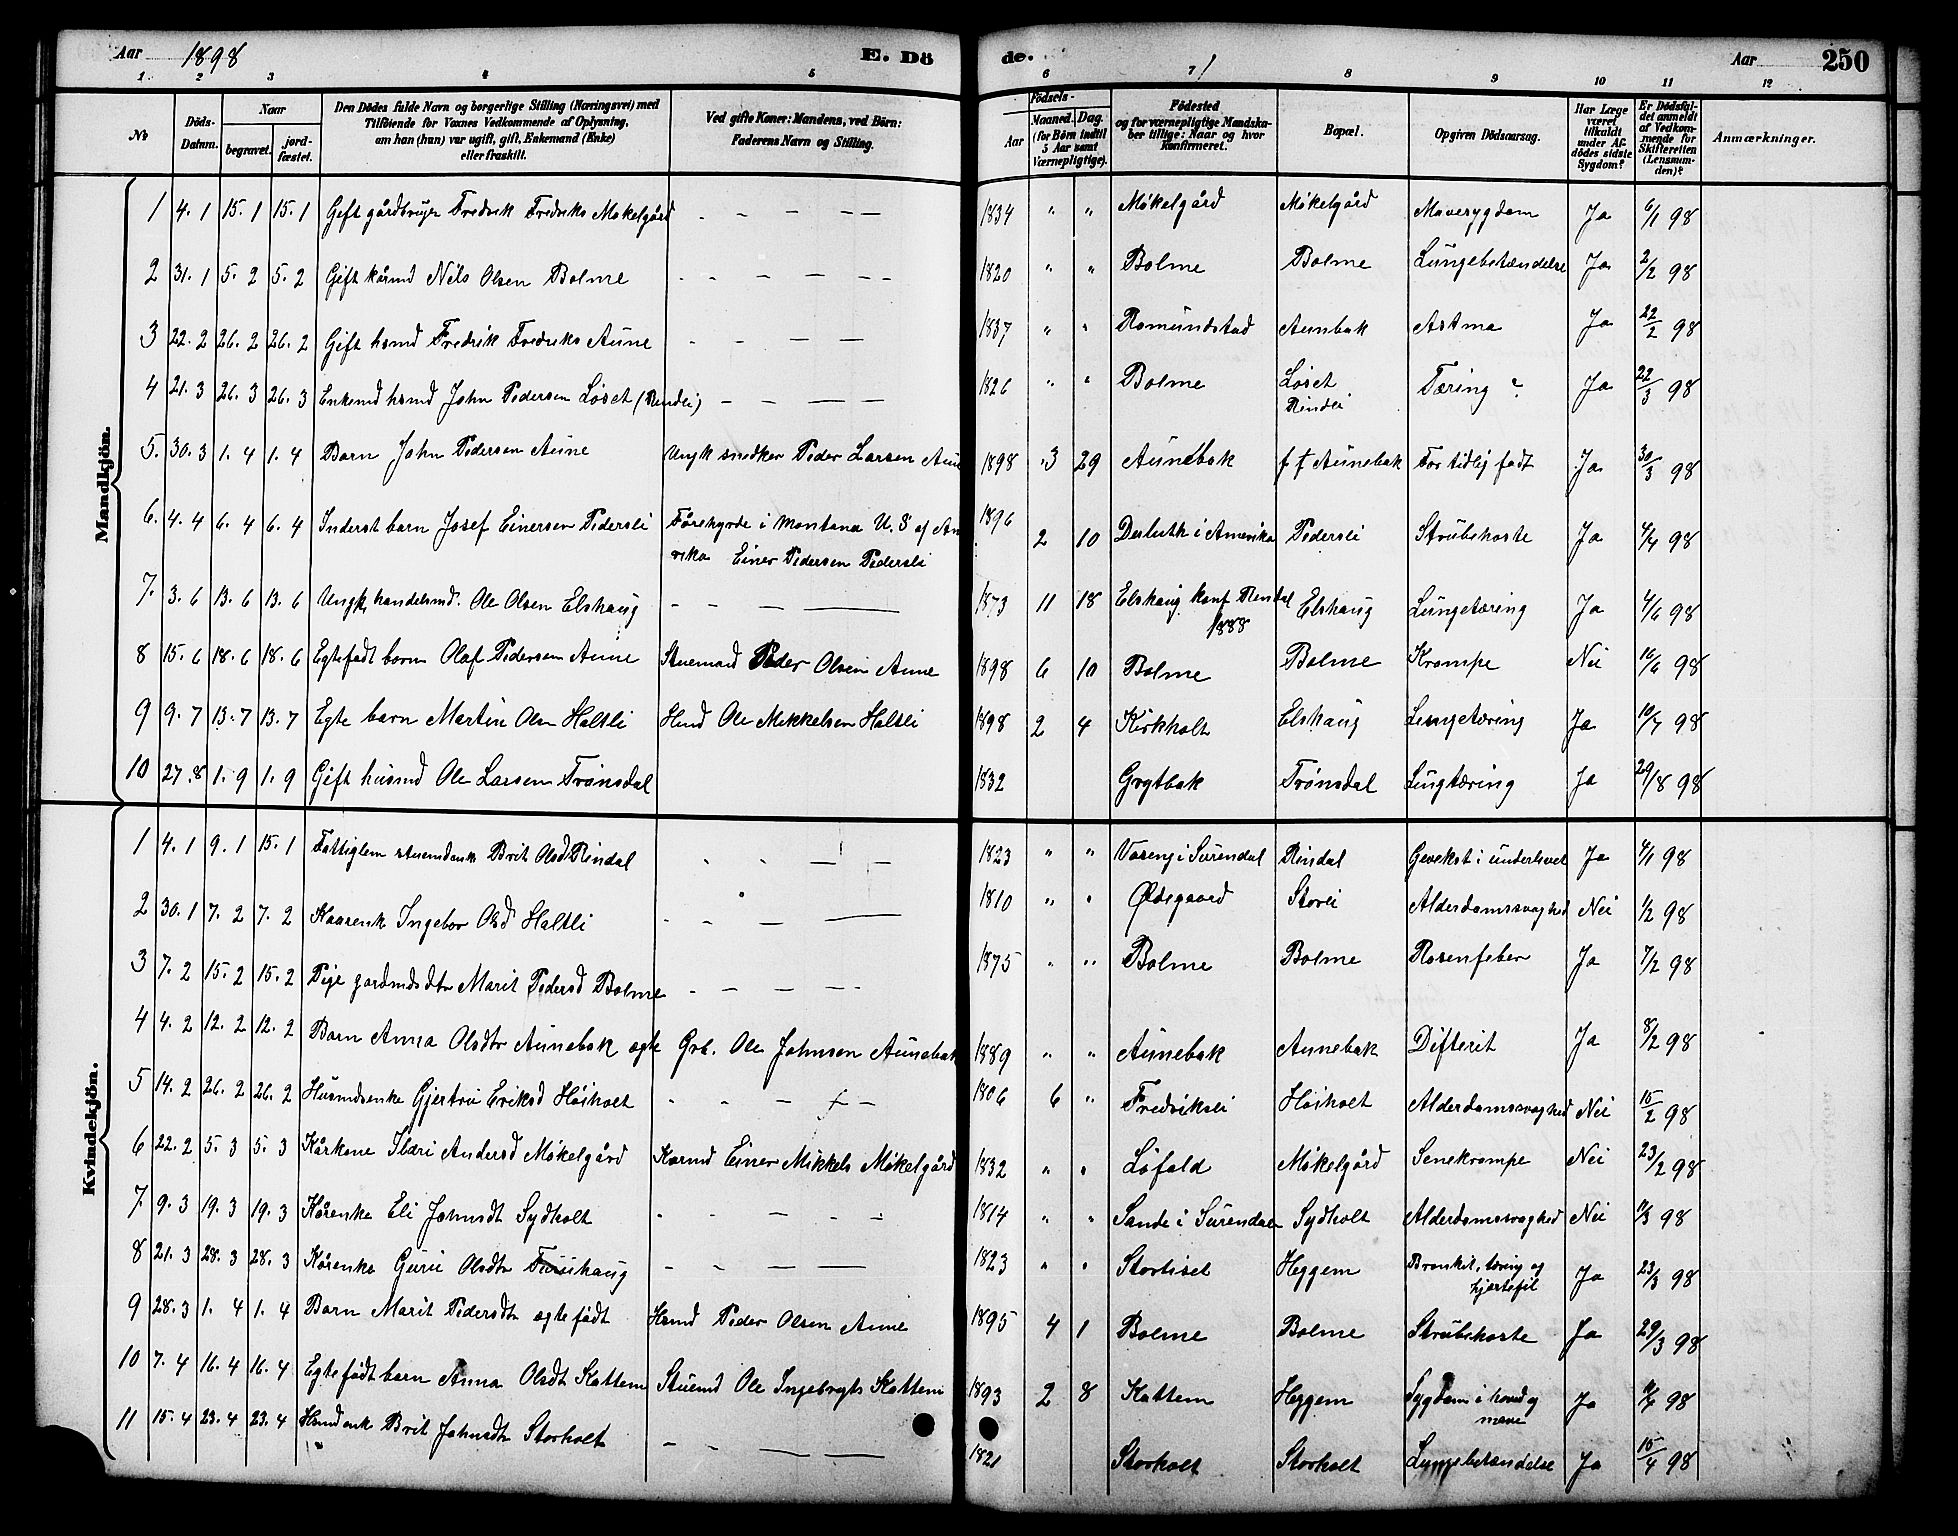 Aar 1898 E. Dö de. 7/ Aar 250
1 2 3 4 5 6 7 8 9 10 11 12
No Döds-Datum. Naar begravet. jordfæstet. Den Dödes fulde Navn og borgerlige Stilling (Næringsvei) med Tilföiende for Voxnes Vedkommende af Oplysning, om han (hun) var ugift, gift, Enkemand (Enke) eller fraskilt. Ved gifte Koner: Mandens, ved Börn: Faderens Navn og Stilling. Födsels- Aar Maaned. Dag. (for Börn indtil 5 Aar samt Værnepligtige). Födested og for værnepligtige Mandskaber tillige: Naar og hvor Konfirmeret. Bopæl. Opgiven Dödsaarsag. Har Læge været tilkaldt under Afdödes sidste Sygdom? Er Dödsfaldet anmeldt af Vedkommende for Skifteretten (Lensmanden)? Anmærkninger.
Mandkjön.
1 4. 1 15. 1 15. 1 Gift gårdbruger Fredrik Fredriks Mokelgård - - - - - 1834 " " Møkelgård Møkelgård Mavesygdom Ja 6/1 98
2 31. 1 5. 2 5. 2 Gift kårmd Nils Olsen Bolme - - - - - - 1820 " " Bolme Bolme Lungebetændelse Ja 2/2 98
3 22. 2 26. 2 26. 2 Gift hsmd Fredrik Fredriks Aune - - - - 1837 " " Romundstad Aunbak Astma Ja 22/2 98
4 21. 3 26. 3 26. 3 Enkemd hsmd John Pedersen Løset (Rindli) - - - - 1826 " " Bolme Løset Rindli Tæring ? Ja 22/3 98
5. 30. 3 1. 4 1. 4 Barn John Pedersen Aune Ungk snedker Peder Larsen Aune 1898 3 29 Aunebak f f Aunebak For tidlig født Ja 30/3 98
6. 4. 4 6. 4 6. 4 Inderst barn Josef Einersen Pedersli Fårehyrde i Montana U. S af Amerika Einer Pedersen Pedersli 1896 2 10 Duluth i Amerika Pedersli Strubehoste Ja 4/4 98
7. 3. 6 13. 6 13. 6 Ungk. handelsmd. Ole Olsen Elshaug - - - - 1873 11 18 Elshaug konf Rindal 1888 Elshaug Lungetæring Ja 4/6 98
8 15. 6 18. 6 18. 6 Egtefødt barn Olaf Pedersen Aune Stuemand Peder Olsen Aune 1898 6 10 Bolme Bolme Krampe Nei 16/6 98
9 9. 7 13. 7 13. 7 Egte barn Martin Olsn Haltli Hsmd Ole Mikkelsen Haltli 1898 2 4 Kirkholt Elshaug Lungetæring Ja 10/7 98
10 27. 8 1. 9 1. 9 Gift husmd Ole Larsen Trønsdal 1832 Grytbak Trønsdal Lungtæring Ja 29/8 98
Kvindekjön.
1 4. 1 9. 1 15. 1 Fattiglem stuemdenk Brit Olsd Rindal 1823 " " Vaseng i Surendal Rindal Gevekst i underlivet Ja 4/1 98
2 30. 1 7. 2 7. 2 Kaarenk Ingebor Olsd Haltli 1810 " " Ødegaard Storli Alderdomssvaghed Nei 1/2 98
3 7. 2 15. 2 15. 2 Pige gardmdsdtr Marit Pedersd Bolme 1875 " " Bolme Bolme Rosenfeber Ja 7/2 98
4 4. 2 12. 2 12. 2 Barn Anna Olsdtr Aunebak egte Grb. Ole Johnsen Aunebak 1889 " " Aunebak Aunebak Difterit Ja 8/2 98
5 14. 2 26. 2 26. 2 Husmdsenke Gjertru Eriksd Høiholt 1806 6 " Fredriksli Høiholt Alderdomssvaghed Nei 15/2 98
6 22. 2 5. 3 5. 3 Kårkone Ildri Andersd Møkelgård Karmd Einer Mikkels Møkelgård 1832 " " Løfald Møkelgård Senekrampe Nei 23/2 98
7. 9. 3 19. 3 19. 3 Kårenke Eli Johnsdt Sydholt 1814 " " Sande i Surendal Sydholt Alderdomssvaghed Nei 98
8 21. 3 28. 3 28. 3 Kårenke Guru Olsdtr Furuhaug 1823 " " Stortisel Heggem Bronkit, tæring og hjertefeil Ja 23/3 98
9 28. 3 1. 4 1. 4 Barn Marit Pedersdtr egtefødt Hsmd Peder Olsen Aune 1895 4 1 Bolme Bolme Strubehoste Ja 29/3 98
10 7. 4 16. 4 16. 4 Egtefødt barn Anna Olsdt Kattem Stuemd Ole Ingebrigts Kattem 1893 2 8 Kattem Heggem Sygdom i hoved og mave Ja 98
11 15. 4 23. 4 23. 4 Hsmdenk Brit Johnsdtr Storholt 1821 Storholt Storholt Lungebetændelse Ja 15/4 98